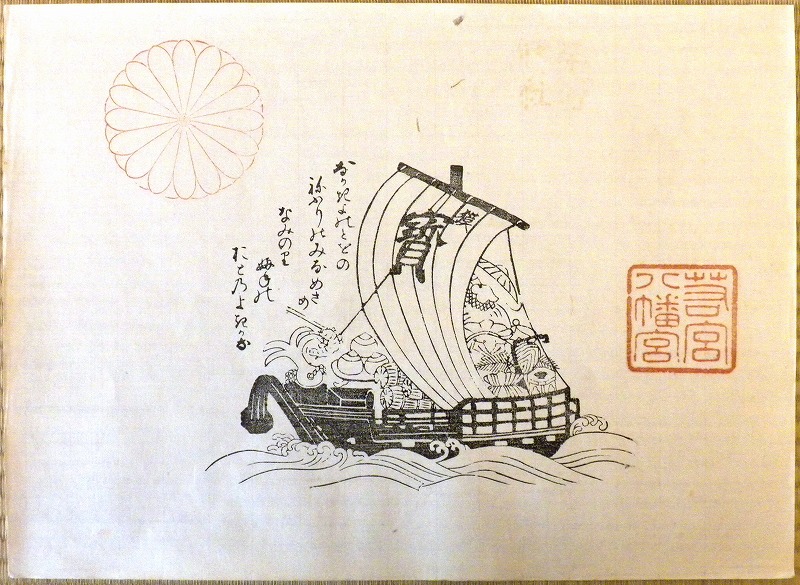 なかきよのとをの
ねふりのみなめさ
め
なみのり
ふねの
おとのよきかな
寶
若宮
八幡宮